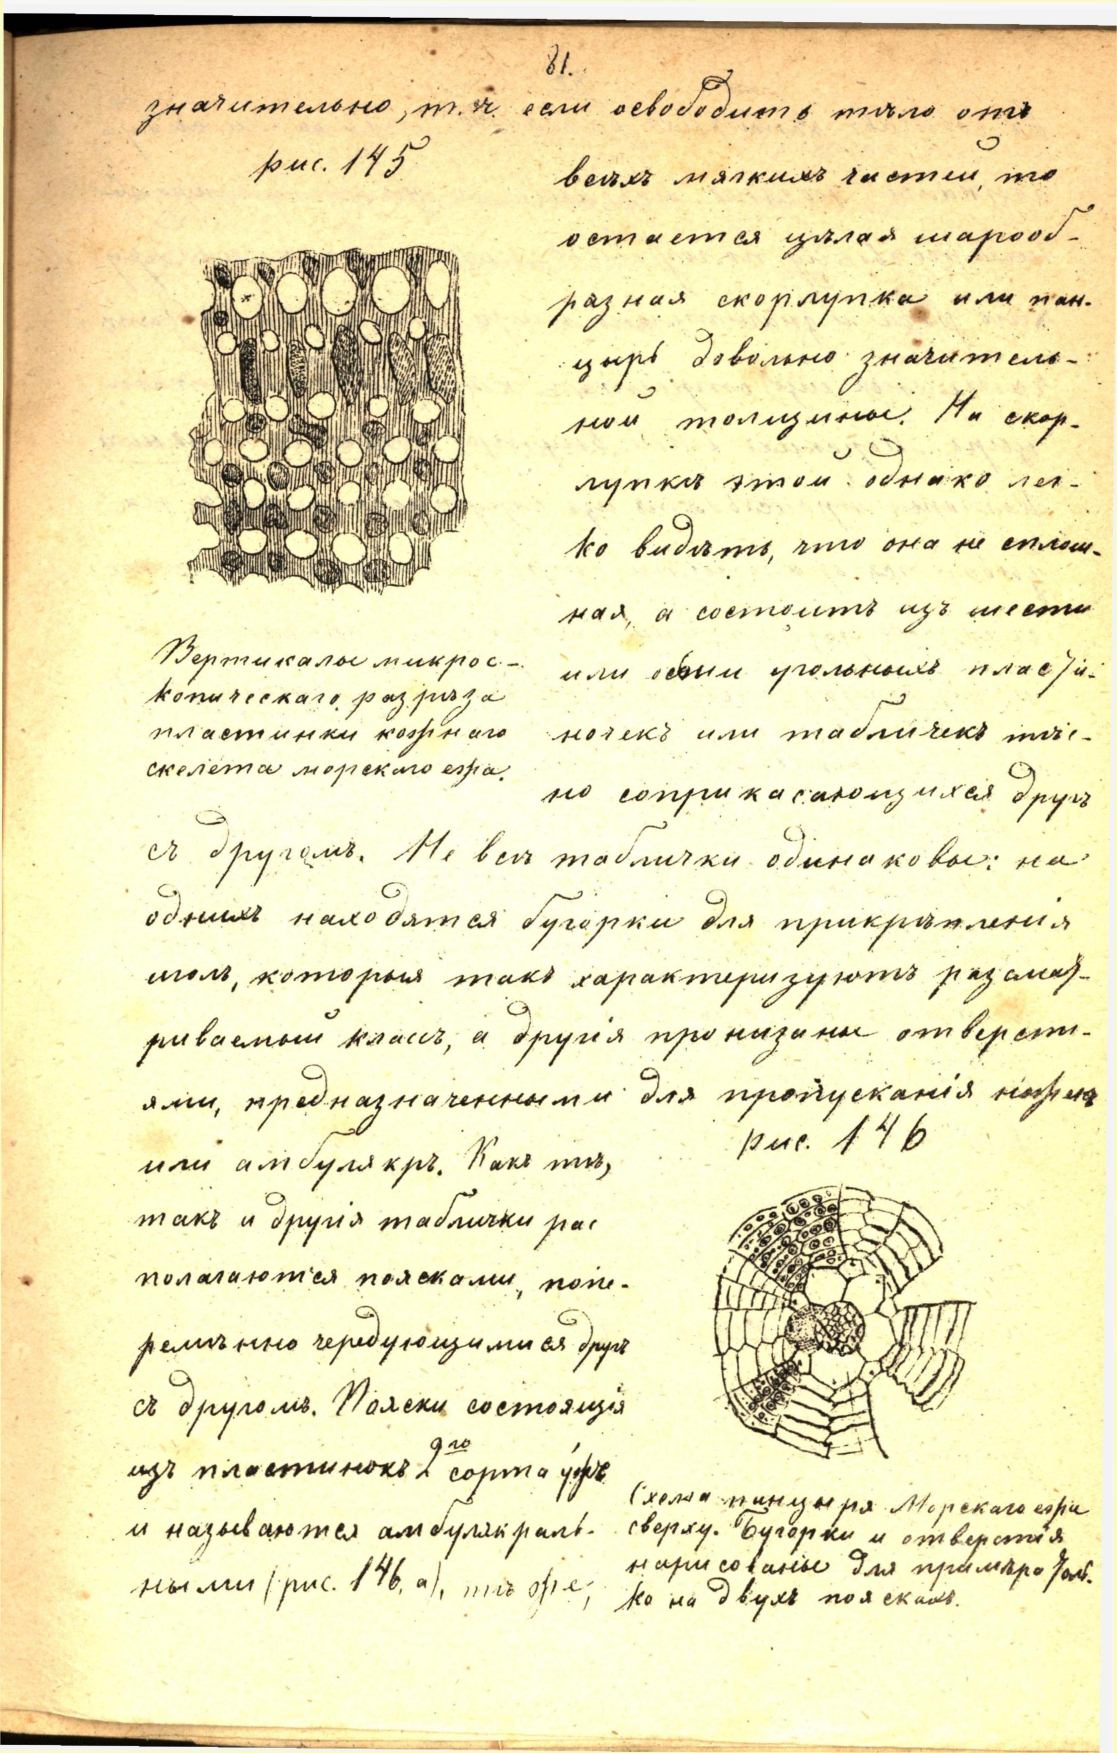 81.
значительно, т.ч. если освободить тѣло отъ
рис. 145
всѣхъ мягкихъ частей, то
остается цѣлая шарооб-
разная скорлупка или пан-
цырь довольно значитель-
ной толщины. На скор-
лупкѣ этой однако лег-
ко видѣть, что она не сплош-
ная, а состоитъ изъ шести
или осьми угольныхъ пласти-
ночекъ или табличекъ тѣс-
но соприкасающихся другъ
Вертикалы микрос-
копическаго разрѣза
пластинки кожнаго
скелета морскаго ежа.
съ другомъ. Не всѣ таблички одинаковы: на
однихъ находятся бугорки для прикрѣпленія
иголъ, которыя такъ характеризуютъ разсмат-
риваемый классъ, а другія пронизаны отверсті-
ями, предназначенными для пропусканія ножекъ
или амбулякръ. Какъ тѣ,
такъ и другія таблички рас
полагаются поясками, попе-
ремѣнно чередующимися другъ
съ другомъ. Пояски состоящія
изъ пластинокъ 2го сорта уже
и называются амбулякраль-
ными (рис. 146, а), тѣ же,
рис. 146
Схема панцыря Морскаго ежа
сверху. Бугорки и отверстія
нарисованы для примѣра толь-
ко на двухъ пояскахъ.